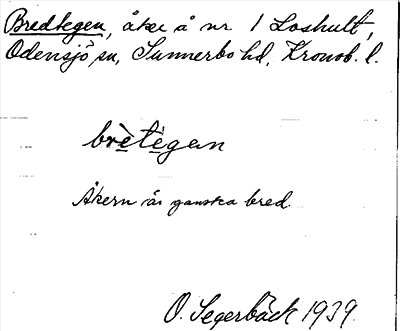 Bredtegen, åker å nr 1 Loshult,
Odensjö sn, Sunnerbo hd, Kronob. l.
brètegan
Åkern är ganska bred.
O. Segerbäck 1939.